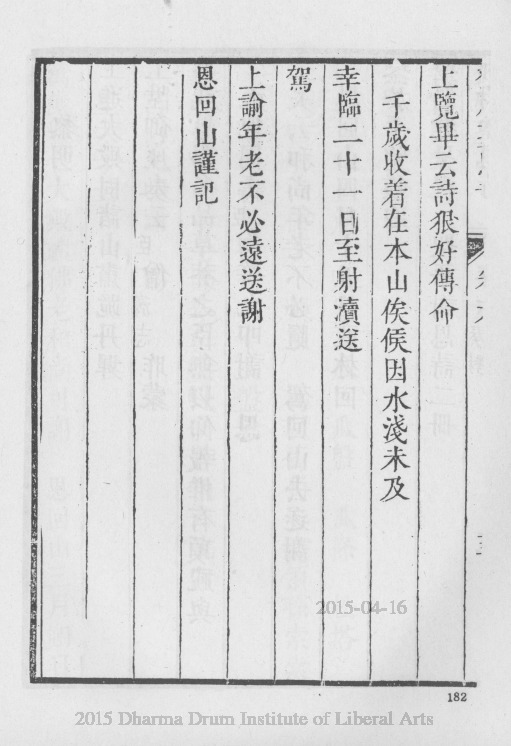 上覽畢云詩狠好傳命
千歲收着在本山俟候因水淺未及
幸臨二十一日至射瀆送
駕
上諭年老不必遠送謝
恩回山謹記
2015-04-16
182
2015 Dharma Drum Institute of Liberal Arts